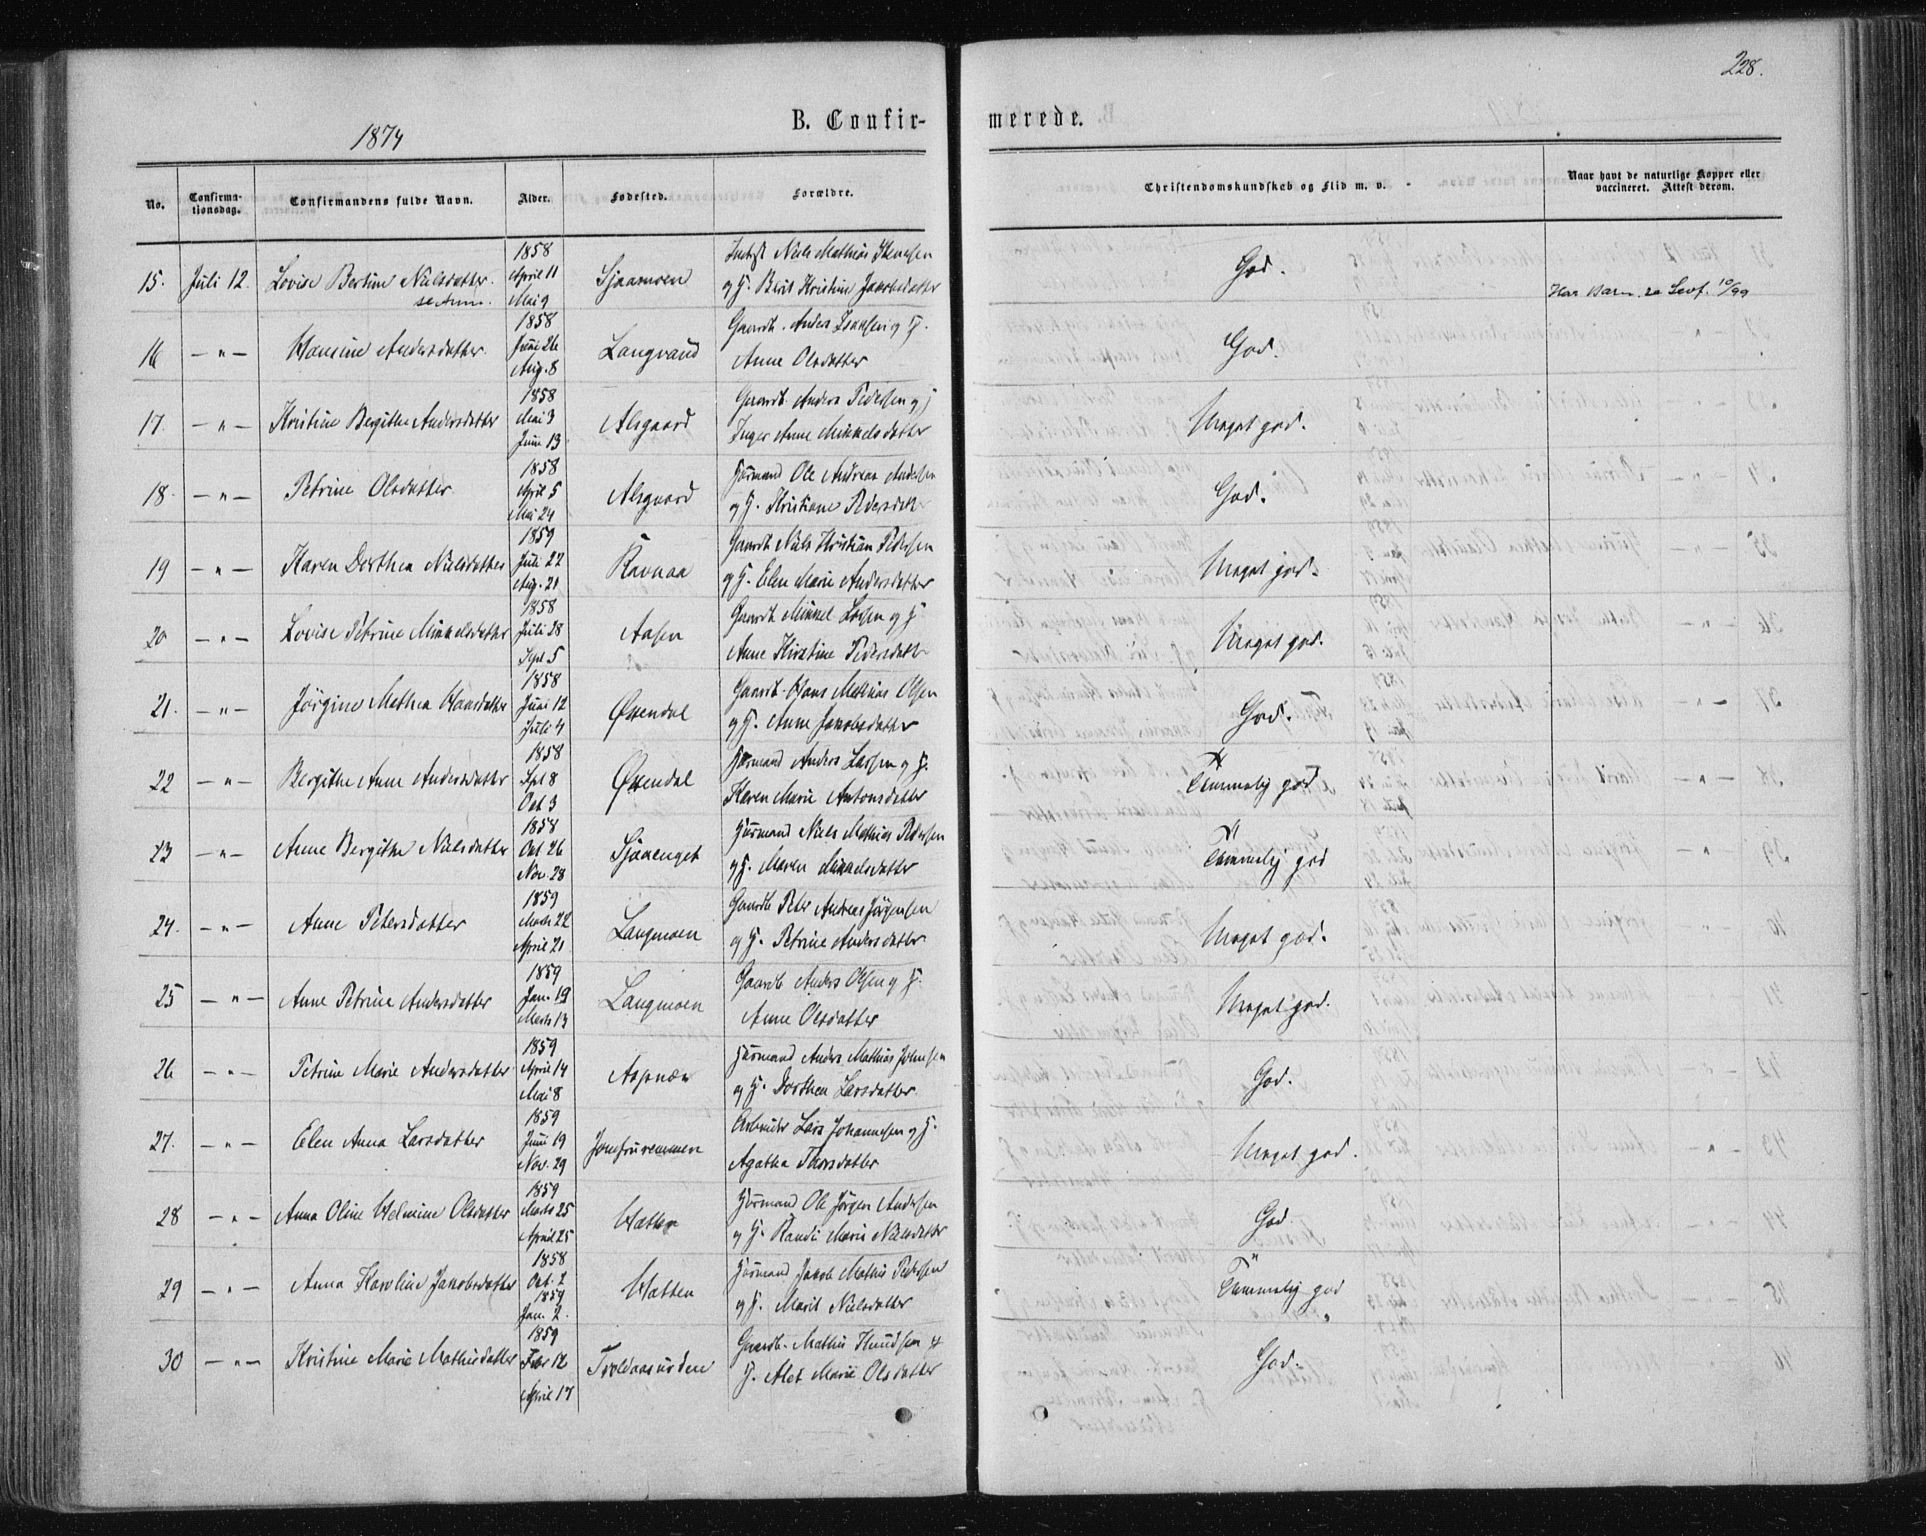 228.
1874
B. Confirmerede.
No.
Confirmationsdag.
Confirmandens fulde Navn.
Alder.
Fødested.
Forældre.
Christendomskundskab og Flid m. v.
Naar havt de naturlige Kopper eller vaccineret. Attest derom.
15. Juli 12. Lovise Bertine Nielsdatter. 1858 April 11 Mai 9 Sjaamoen Niels Mathias
og H. Berit Kristine Jakobsdatter God. Har Barn 10/99
16 — " — Hansine Andersdatter. 1858 Juni 26 Aug. 8 Langvand Gaardb. Anders Isaksen og H.
Anne Olsdatter God.
17. — " — Kristine Bergithe Andersdatter 1858 Mai 3 Juni 13 Alsgaard Gaardb. Anders Pedersen og H
Inger Anne Mikkelsdatter Meget god.
18. — " — Petrine Olsdatter. 1858 April 5 Mai 24 Alsgaard Huusmand Ole Andreas Andersen
og H. Kristiane Pedersdatt God.
19 — " — Karen Dorthea Nielsdatter 1859 Juli 22 Aug. 21 Ravnaa Gaardb. Niels Kristian Pedersen
og H. Elen Marie Andersdatter Meget god.
20 — " — Lovise Petrine Mikkelsdatter 1858 Juli 28 Sept 5 Aasen Gaardb Mikkel Larsen og H
Anne Kirstine Pedersdatt Meget god.
21. — " — Jørgine Mathea Hansdatter 1858 Juni 12 Juli 4 Øxendal Gaardb. Hans Mathias Olsen
og H. Anne Jakobsdatter God.
22 — " — Bergithe Anne Andersdatter 1858 Sept 8 Oct. 3 Øxendal Huusmand Anders Larsen og H.
Karen Marie Antonsdatter Temmelig god
23 — " — Anne Bergithe Nielsdatter 1858 Oct 26 Nov. 28 Sjaaenget Huusmand Niels Mathias Pedersen
og H. Maren Mikkelsdatter Temmelig god
24. — " — Anne Petersdatter 1859 Marts 22 April 21 Langmoen Gaardb Peter Andreas Jørgensen
og H. Petrine Andersdatter Meget god.
25 — " — Anne Petrine Andersdatter 1859 Jan. 19 Marts 13 Langmoen Gaardb Anders Olsen og H.
Anne Olsdatter Meget god.
26 — " — Petrine Marie Andersdatter 1859 April 14 Mai 8 Aspnæs Huusmand Anders Mathias Johnsen
og H. Dorthea Larsdatter. God.
27. — " — Elen Anna Larsdatter 1859 Juni 19 Nov. 29 Jomfruremmen Arbeider Lars Johannesen og H.
Agatha Thorsdatter Meget god.
28 — " — Anna Oline Helmine Olsdatter 1859 Marts 25 April 25 Hatten Huusmand Ole Jørgen Andersen
og H. Randi Marie Nielsdatter God.
29 — " — Anna Karoline Jakobsdatter 1858 Oct. 2 1859 Jan. 2. Hatten Huusmand Jakob Mathis Pedersen
og H. Marit Nielsdatter Temmelig god
30 — " — Kristine Marie Mathisdatter 1859 Febr 12 April 17 Troldaasurden Gaardb. Mathis Knudsen og
H. Alet Marie Olsdatter God.